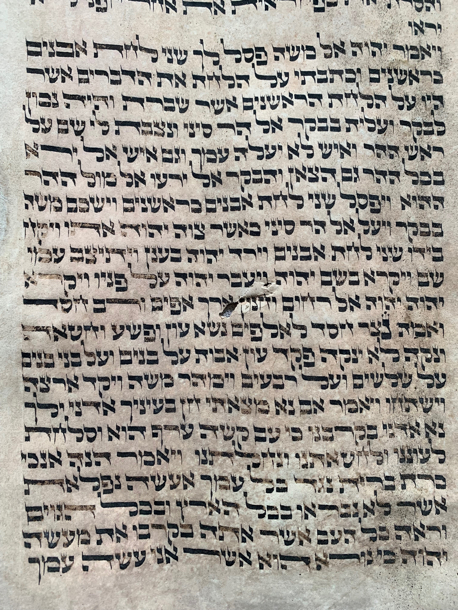 יראו
ויאמר יהוה אל משה פסל לך שני לחת אבנים
כראשנים וכתבתי על הלחת את הדברים אשר
היו על הלחת הראשנים אשר שברת והיה נכון
לבקר ועלית בבקר אל הר סיני ונצבת לי שם על
ראש ההר ואיש לא יעלה עמך וגם איש אל ירא
בכל ההר גם הצאן והבקר אל ירעו אל מול ההר
ההוא ויפסל שני לחת אבנים כראשנים וישכם משה
בבקר ויעל אל הר סיני כאשר צוה יהוה אתו ויקח
בידו שני לחת אבנים וירד יהוה בענן ויתיצב עמו
שם ויקרא בשם יהוה ויעבר יהוה על פניו ויקרא
יהוה יהוה אל רחום וחנון ארך אפים ורב חסד
ואמת נצר חסד לאלפים נשא עון ופשע וחטאה
ונקה לא ינקה פקד עון אבות על בנים ועל בני בנים
על שלשים ועל רבעים וימהר משה ויקד ארצה
וישתחו ויאמר אם נא מצאתי חן בעיניך אדני ילך
נא אדני בקרבנו כי עם קשה ערף הוא וסלחת
לעוננו ולחטאתנו ונחלתנו ויאמר הנה אנכי
כרת ברית נגד כל עמך אעשה נפלאת
אשר לא נבראו בכל הארץ ובכל הגוים
וראה כל העם אשר אתה בקרבו את מעשה
יהוה כי נורא הוא אשר אני עשה עמך